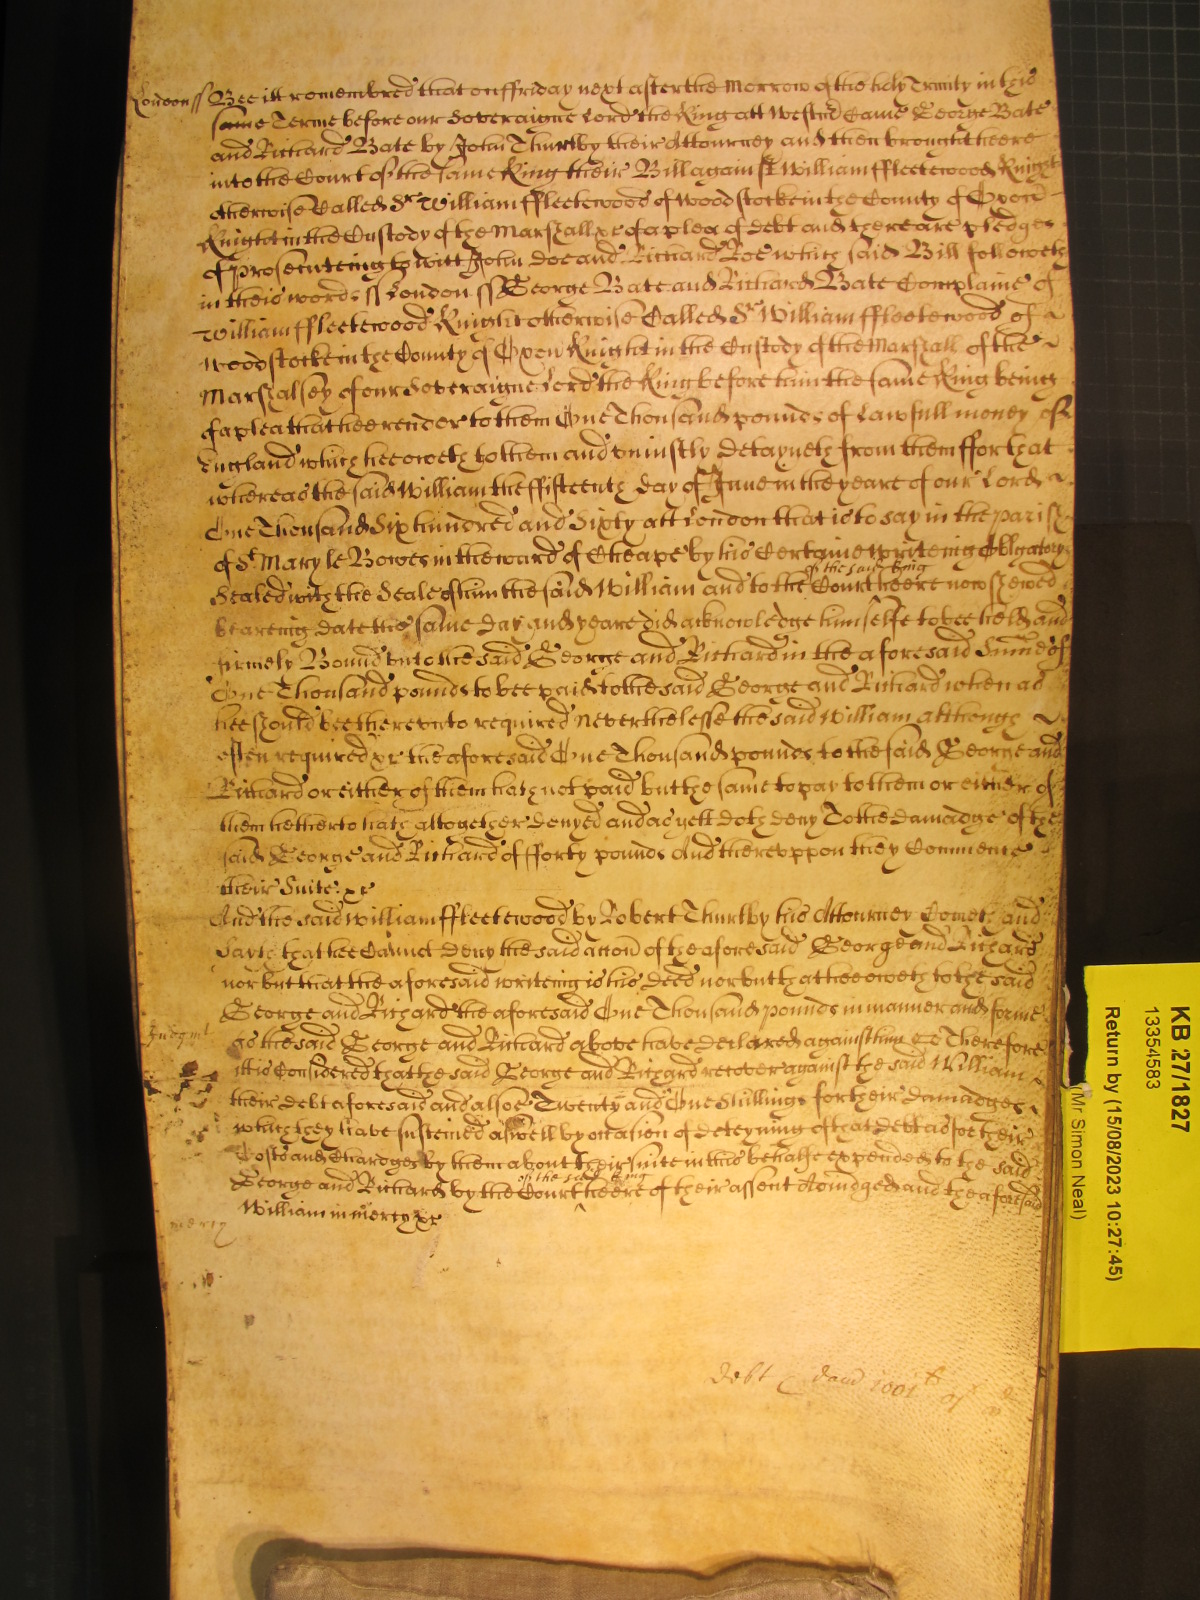 London ss Bee itt remembred that on ffriday next after the Morrow of the holy Trinity in this
same Terme before our Soveraigne Lord the King att Westm̃ Came George Bate
and Richard Bate by John Thurlby their Attourney and then brought heere
into the Court of the same King their Bill against William ffleetewood Knight
otherwise Called Sr William ffleetewood of Woodstocke in the County of Oxon
Knight in the Custody of the Marshall &c of a plea of debt and there are pledges
of prosecuteing to witt John Doe and Richard Roe which said Bill followeth
in theis words ss London ss George Bate and Richard Bate Complaine of
William ffleetewood Knight otherwise Called Sr William ffleetewood of
Woodstocke in the County of Oxon Knight in the Custody of the Marshall of the
Marshalsey of our Soveraigne Lord the King before him the same King being
of a plea that hee render to them One Thousand pounds of Lawfull money of
England which hee oweth to them and uniustly detayneth from them ffor that
whereas the said William the ffifteenth day of June in the yeare of our Lord
One Thousand Six hundred and Sixty att London that is to say in the parish
of St Mary le Bowes in the ward of Cheape by his Certaine writeing Obligatory
of the said King
Sealed with the Seale of him the said William and to the Court heere now shewed
beareing date the same day and yeare did acknowledge himselfe to bee held and
firmely Bound unto the said George and Richard in the aforesaid Sum̃e of
One Thousand pounds to bee paid to the said George and Richard when as
hee should bee thereunto required Neverthelesse the said William although
often required &c the aforesaid One Thousand pounds to the said George and
Richard or either of them hath not paid but the same to pay to them or either of
them hetherto hath altogether denyed and as yett doth deny To the damadge of the
said George and Richard of fforty pounds And thereuppon they Commence
their Suite &c
And the said William ffleetewood by Robert Thurlby his Attourney Cometh and
sayth that hee Cannot deny the said action of the aforesaid George and Richard
nor but that the aforesaid writeing is his deed nor but that hee oweth to the said
George and Richard the aforesaid One Thousand pounds in manner and forme
Iudgmt as the said George and Richard above have declared against him &c Therefore
itt is Considered that the said George and Richard recover against the said William
their debt aforesaid and alsoe Twenty and One Shillings for their damadges
which they have susteined aswell by occasion of deteyning of that debt as for their
Costs and Chardges by them about their suite in this behalfe expended to the said
of the said King
George and Richard by the Court heere of their assent Adiudged and the aforesaid
mercy William in mercy &c
debt & dam̃ 1001li
KB 27/1827
13354583
Return by (15/08/2023 10:27:45)
(Mr Simon Neal)